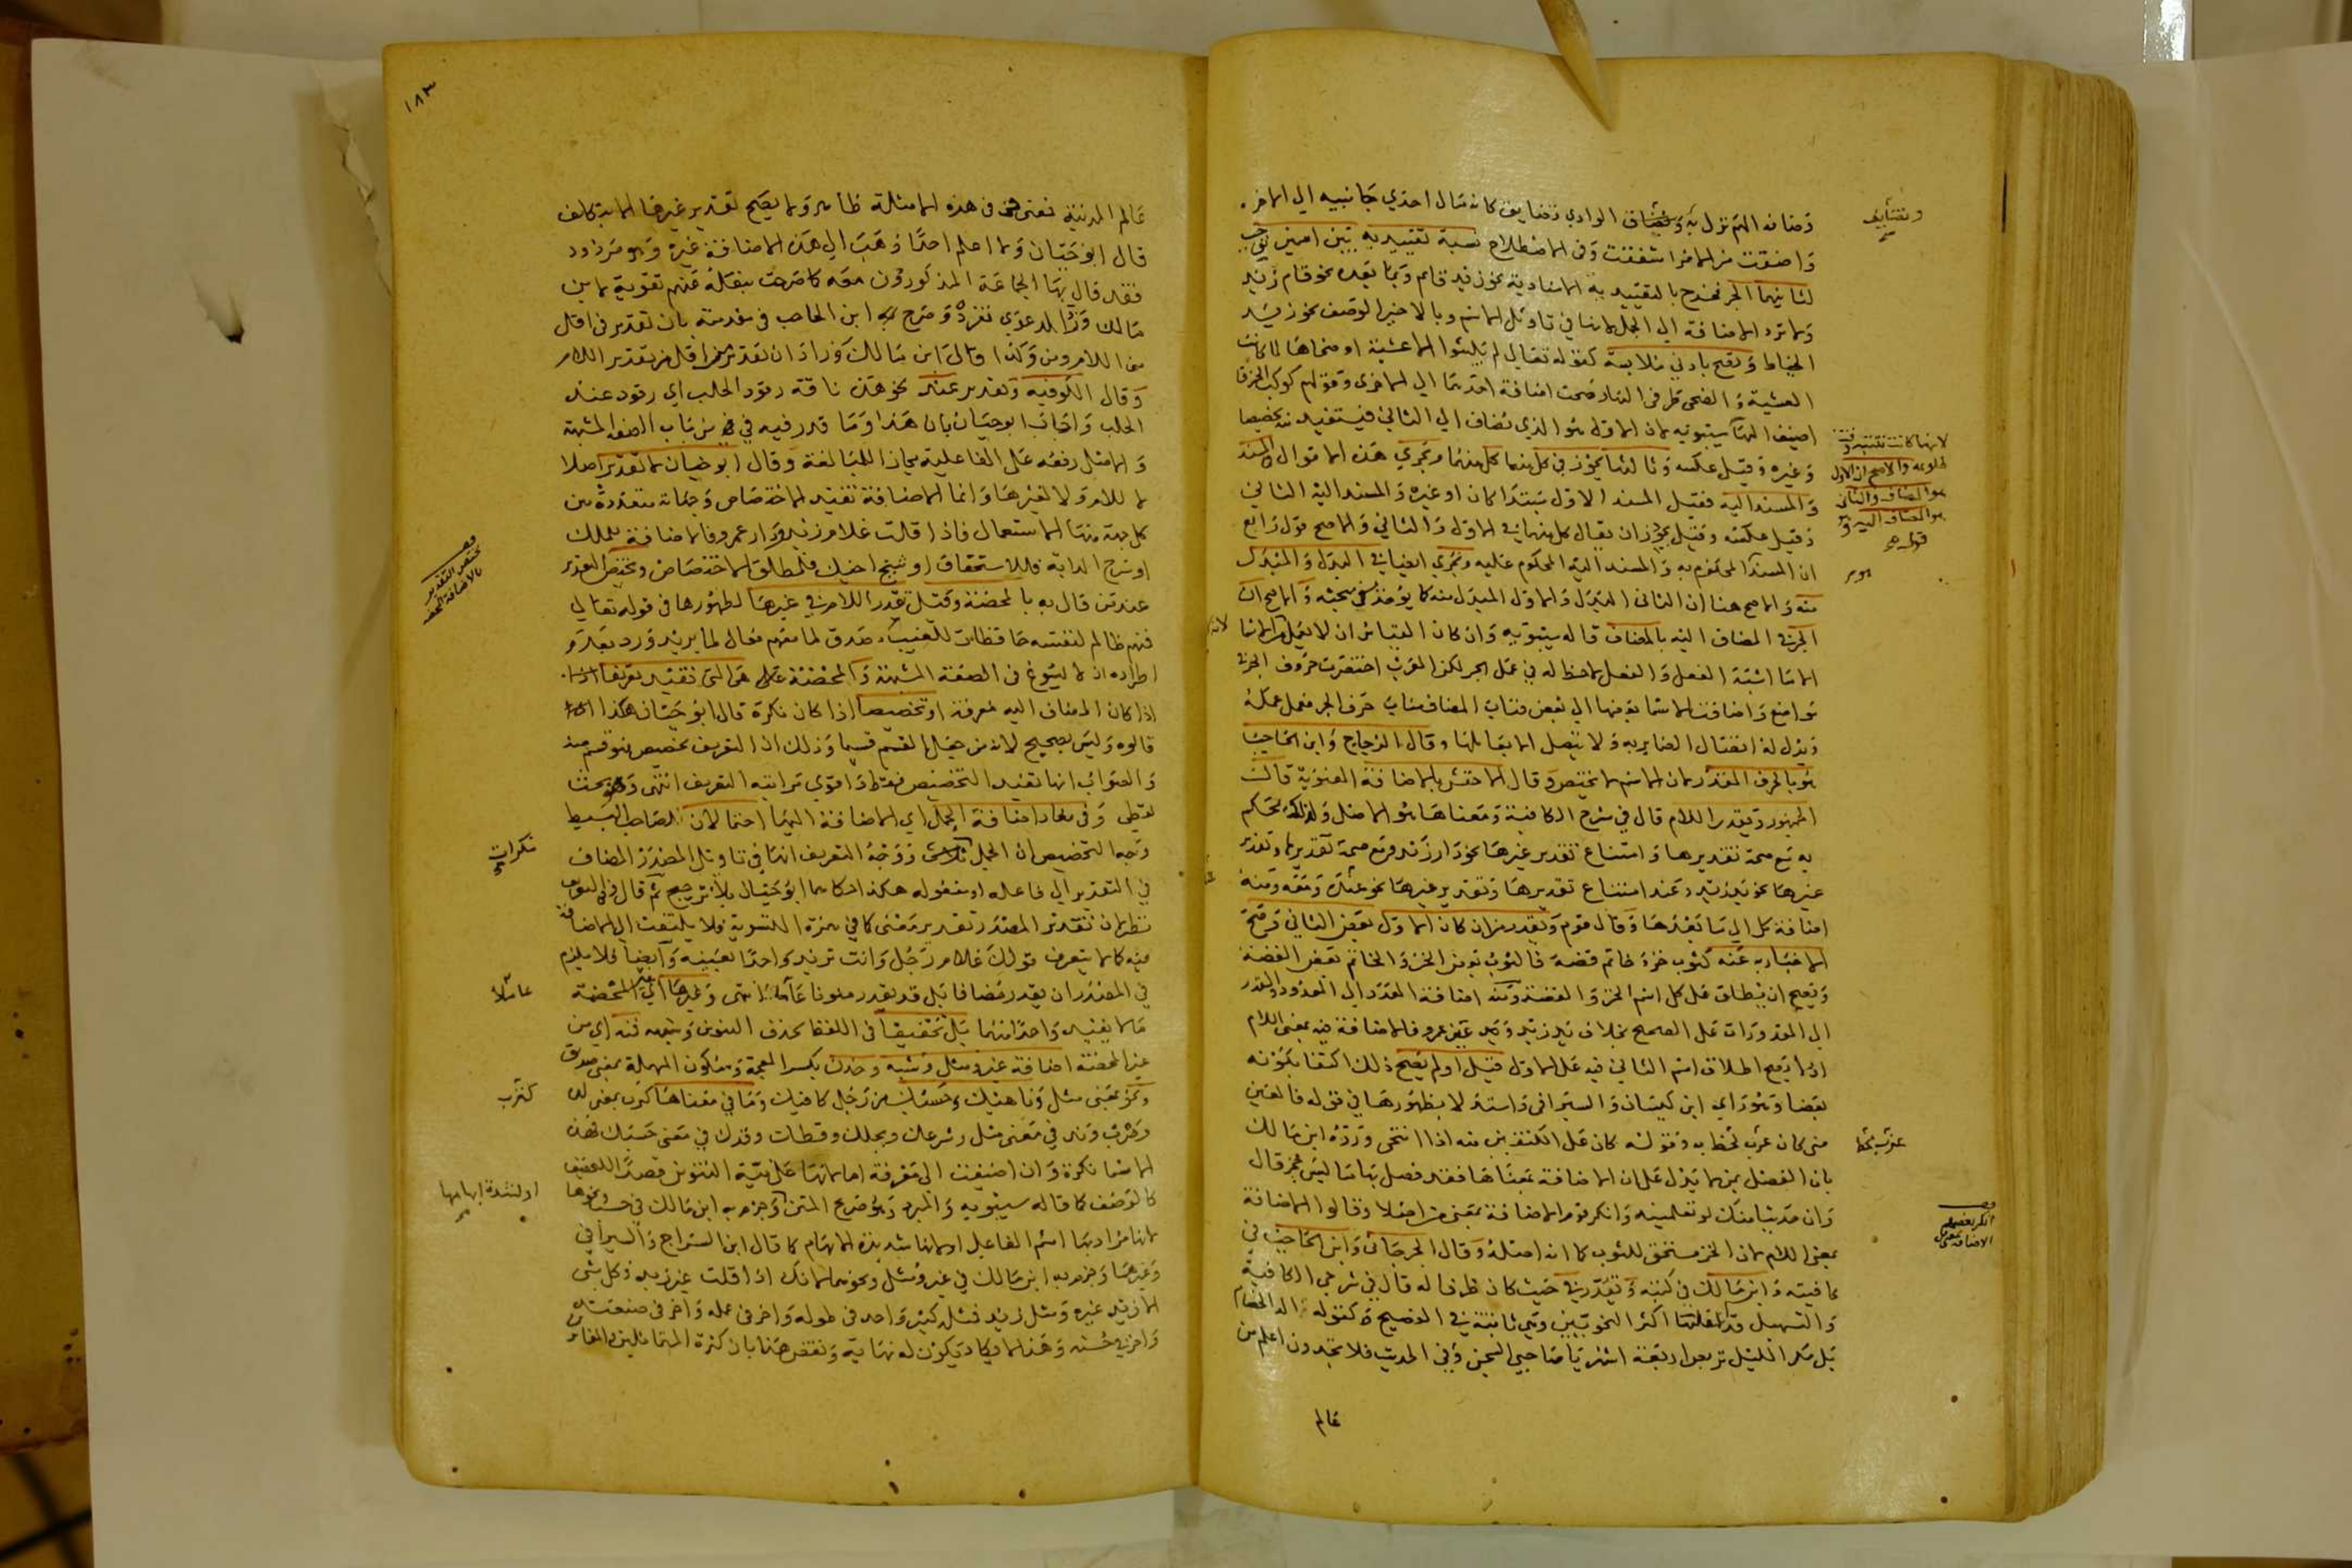 وضافه الهم نزل به وتضايف الوادي تضايق كانه مال احدي جانبيه الي الاخر
واضفت من الامر اشفقت وفي الاصطلاح نسبة تقييديه بين اسمين توجب
لثانيهما الجر فخرج بالتقييدية الاسنادية نحو زيد قائم وبما بعده نحو قام زيد
ولا ترد الاضافة الي الجمل لانها في تاويل الاسم وبالاخير الوصف نحو زيد
الخياط وتصح بادني ملابسة كقوله تعالي لم يلبثوا الا عشية او ضحاها لما كانت
العشية والضحي طرفي النهار صحت اضافة احدهما الي الاخرى وقولهم كوكب الخرقا
لانها كانت تتنبه وقت
طلوعه والاصح ان الاول
هو المضاف والثاني
هو المضاف اليه وهو
قول
اضيف اليها سيبويه لان الاول هو الذي يضاف الي الثاني فيستفيد منه تخصيصا
وغيره وقيل عكسه وثالثها يجوز في كل منهما كل منهما وتجري هذه الاقوال في المسند
والمسند اليه فقيل المسند الاول مبتدا كان او غيره والمسند اليه الثاني
وقيل عكسه وقيل يجوز ان يقال كل منهما في الاول والثاني والاصح قول رابع
ان المسند المحكوم به والمسند اليه المحكوم عليه وتجري ايضا في البدل والمبدل
منه والاصح هنا ان الثاني البدل والاول المبدل منه كما يؤخذ من مبحثه والاصح ان
الجر في المضاف اليه بالمضاف قاله سيبويه وان كان القياس ان لا يعمل من الاسما
الا ما اشبه الفعل والفعل لا حظ له في عمل الجر لكن العرب اختصرت حروف الجر في
مواضع واضافت الاسما بعضها الي بعض فناب المضاف مناب حرف الجر فعمل عمله
ويدل له اتصال الضماير به ولا تتصل الا بعاملها وقال الزجاج وابن الحاجب
هو بالحرف المقدر لان الاسم لا يختص وقال الاخفش بالاضافة المعنوية قالت
الجمهور وتقدر اللام قال في شرح الكافية ومعناها هو الاصل ولذلك يحكم
به مع صحة تقديرها وامتناع تقدير غيرها نحو دار زيد ومع صحة تقديرها وتقدير
غيرها نحو يد زيد وعند امتناع تقديرها وتقدير غيرها نحو عنده ومعه ومنه
اضافة كل الي ما بعدها وقال قوم وتقدر من ان كان الاول بعض الثاني وصح
الاخبار به عنه كثوب خز وخاتم فضة فالثوب بعض الخز والخاتم بعض الفضة
ويصح ان يطلق علي كل اسم الخز والفضة ومنه اضافة العدد الي المعدود والمقدر
الي المقدورات علي الصحيح بخلاف يد زيد ويد عين عمرو فالاضافة فيه بمعني اللام
اذ لا يصح اطلاق اسم الثاني فيه علي الاول قيل او لم يصح ذلك اكتفا بكونه
بعضا وهو راي ابن كيسان والسيرافي واستدلا بظهورها في قوله فالعين
مني كان غرب تحط به وقوله كان علي الكتفين منه اذا انتحي ورده ابن مالك
بان الفصل بمن لا يدل علي ان الاضافة بمعناها فقد فصل بها ما ليس بجز قال
وان حديثا منك لو تعلمينه وانكر قوم الاضافة بمعني من اصلا وقالوا الاضافة
بمعني اللام لان الخز مستحق للثوب كما انه اصله وقال الجرجاني وابن الحاجب في
كافيته وابن مالك في كتبه وتقدر في حيث كان ظرفا له قال في شرحي الكافية
والتسهيل وقد اغفلها اكثر النحويين وهي ثابتة في الفصيح كقوله الد الخصام
بل مكر الليل تربص اربعة اشهر يا صاحبي السجن وفي الحديث فلا تجدون اعلم من
عالم
وتضايف
عرب تحط
انكر بعضهم
الاضافة بمعنى من
١٨٣
عالم المدينة فمعني في في هذه الامثلة ظاهر ولا يصح تقدير غيرها الا بتكلف
قال ابو حيان ولا اعلم احدا ذهب الي هذه الاضافة غيره وهو مردود
فقد قال بها الجماعة المذكورون معه كما صرحت بنقله عنهم تقوية لابن
مالك وردا لدعوي تفرده وصرح به ابن الحاجب في مقدمته بان تقدير في اقل
من اللام ومن وكذا قال ابن مالك وزاد ان تقدير من اقل من تقدير اللام
وقال الكوفيه وتقدير عند نحو هذه ناقة رقود الحلب اي رقود عند
الحلب واجاب ابو حيان بان هذا وما قدر فيه في من باب الصفة المشبهة
والاصل رفعه علي الفاعلية مجازا للمبالغة وقال ابو حيان لا تقدير اصلا
لا للام ولا لغيرها وانما الاضافة تفيد الاختصاص وجهاته متعددة بين
كل جهة منها الاستعمال فاذا قلت غلام زيد ودار عمرو فالاضافة للملك
او سرج الدابة فللاستحقاق او شيخ اخيك فلمطلق الاختصاص ويختص التقدير
عند من قال به بالمحضة وقيل تقدر اللام في غيرها لظهورها في قوله تعالي
فمنهم ظالم لنفسه حافظات للغيب مصدق لما معهم فعال لما يريد ورد بعدم
اطراده اذ لا يسوغ في الصفة المشبهة والمحضة هي التي تفيد تعريفا
اذا كان المضاف اليه معرفة او تخصيصا اذا كان نكرة قال ابو حيان هكذا
قالوه وليس بصحيح لانه من جعل القسيم قسيما وذلك ان التعريف تخصيص فهو قسم منه
والصواب انها تفيد التخصيص فقط واقوي مراتبه التعريف انتهي وهو بحث
لفظي وفي مفاد اضافة الجمل اي الاضافة اليها احتمالان لصاحب البسيط
وجه التخصيص ان الجمل نكرات ووجه التعريف انها في تاويل المصدر المضاف
في التقدير الي فاعله او مفعوله هكذا حكاهما ابو حيان بلا ترجيح ثم قال
نظر لان تقدير المصدر تقدير معني كما في همزة التسوية فلا يلتفت الي الاضافة
فيه كما لا يتعرف قولك غلام رجل وانت تريد واحدا بعينه وايضا فلا يلزم
في المصدر ان يقدر مضافا بل قد يقدر منونا عاملا وغيرها اي غير المحضة
ما لا يفيد واحدا منهما بل تخفيفا في اللفظ بحذف التنوين وشبهه فمنه اي من
غير المحضة اضافة غير ومثل وشبه وخدن بكسر المعجمة وسكون المهملة بمعني صديق
ونحو بمعني مثل وناهيك وحسبك من رجل كافيك وما في معناها كترب بمعني لدة
وضرب وند في معني مثل وشرعك وبجلك وقطك وقدك في معني حسبك فهذه
الاسما نكرة وان اضيفت الي معرفة اما لانها علي نية التنوين قصدا للتخفيف
كالوصف كما قاله سيبويه والمبرد وهو صريح المتن وجزم به ابن مالك في حسبك ونحوها
لانها مراد بها اسم الفاعل او لانها شديدة الابهام كما قال ابن السراج والسيرافي
وغيرهما وجزم به ابن مالك في غير ومثل ونحوهما لانك اذا قلت غير زيد فكل شي
الا زيد غيره ومثل زيد فمثله كثير واحد في طوله واخر في عمله واخر في صنعته
واخر في حسنه وهذا لا يكاد يكون له نهاية ونقض هذا بان كثرة المتماثلين والمغاير
يختص التقدير
بالاضافة المحضة
نكرات
عاملا
كترب
او لشدة ابهامها